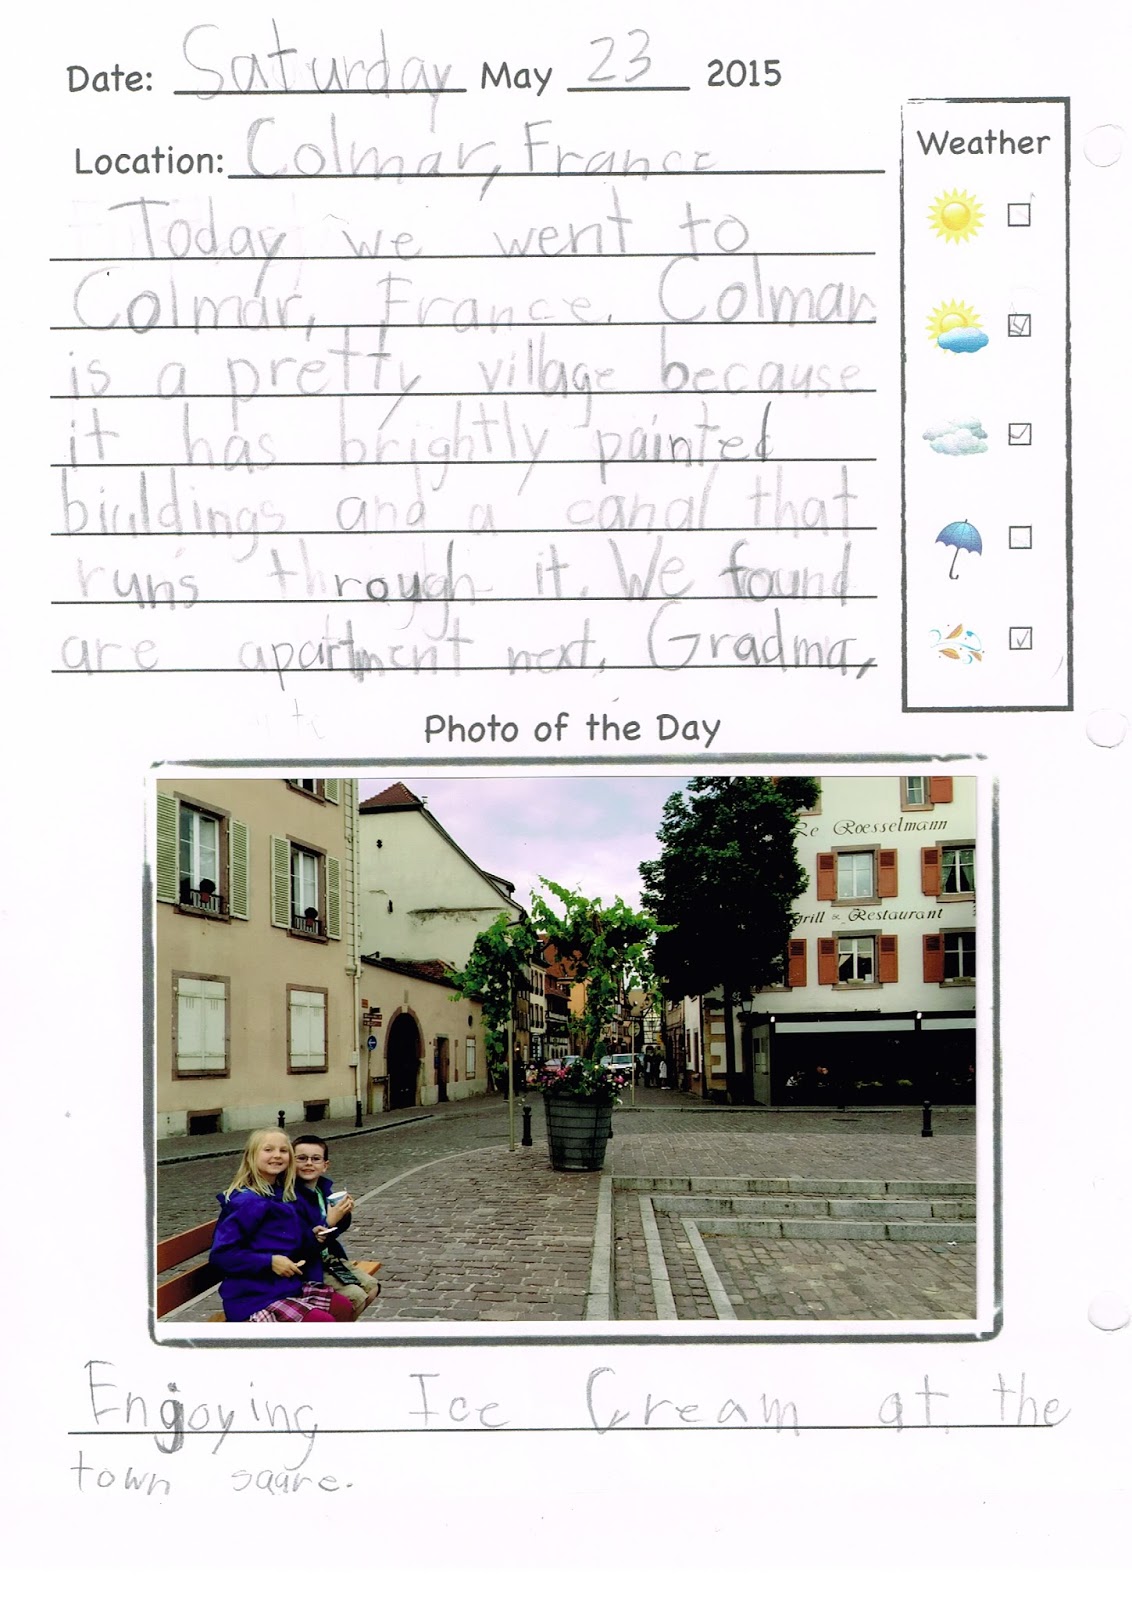 Date: Saturday May 23 2015
Location: Colmar, France
Weather
Today we went to
Colmar, France. Colmar
is a pretty village because
it has brightly painted
biuldings and a canal that
runs through it. We found
are apartment next. Gradma,
Photo of the Day
Le Roesselmann
Grill & Restaurant
Enjoying Ice Cream at the
town sqare.